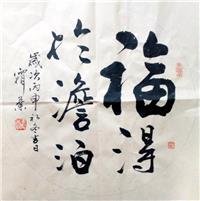 福得
於澹泊
歲次丙申初冬吉日